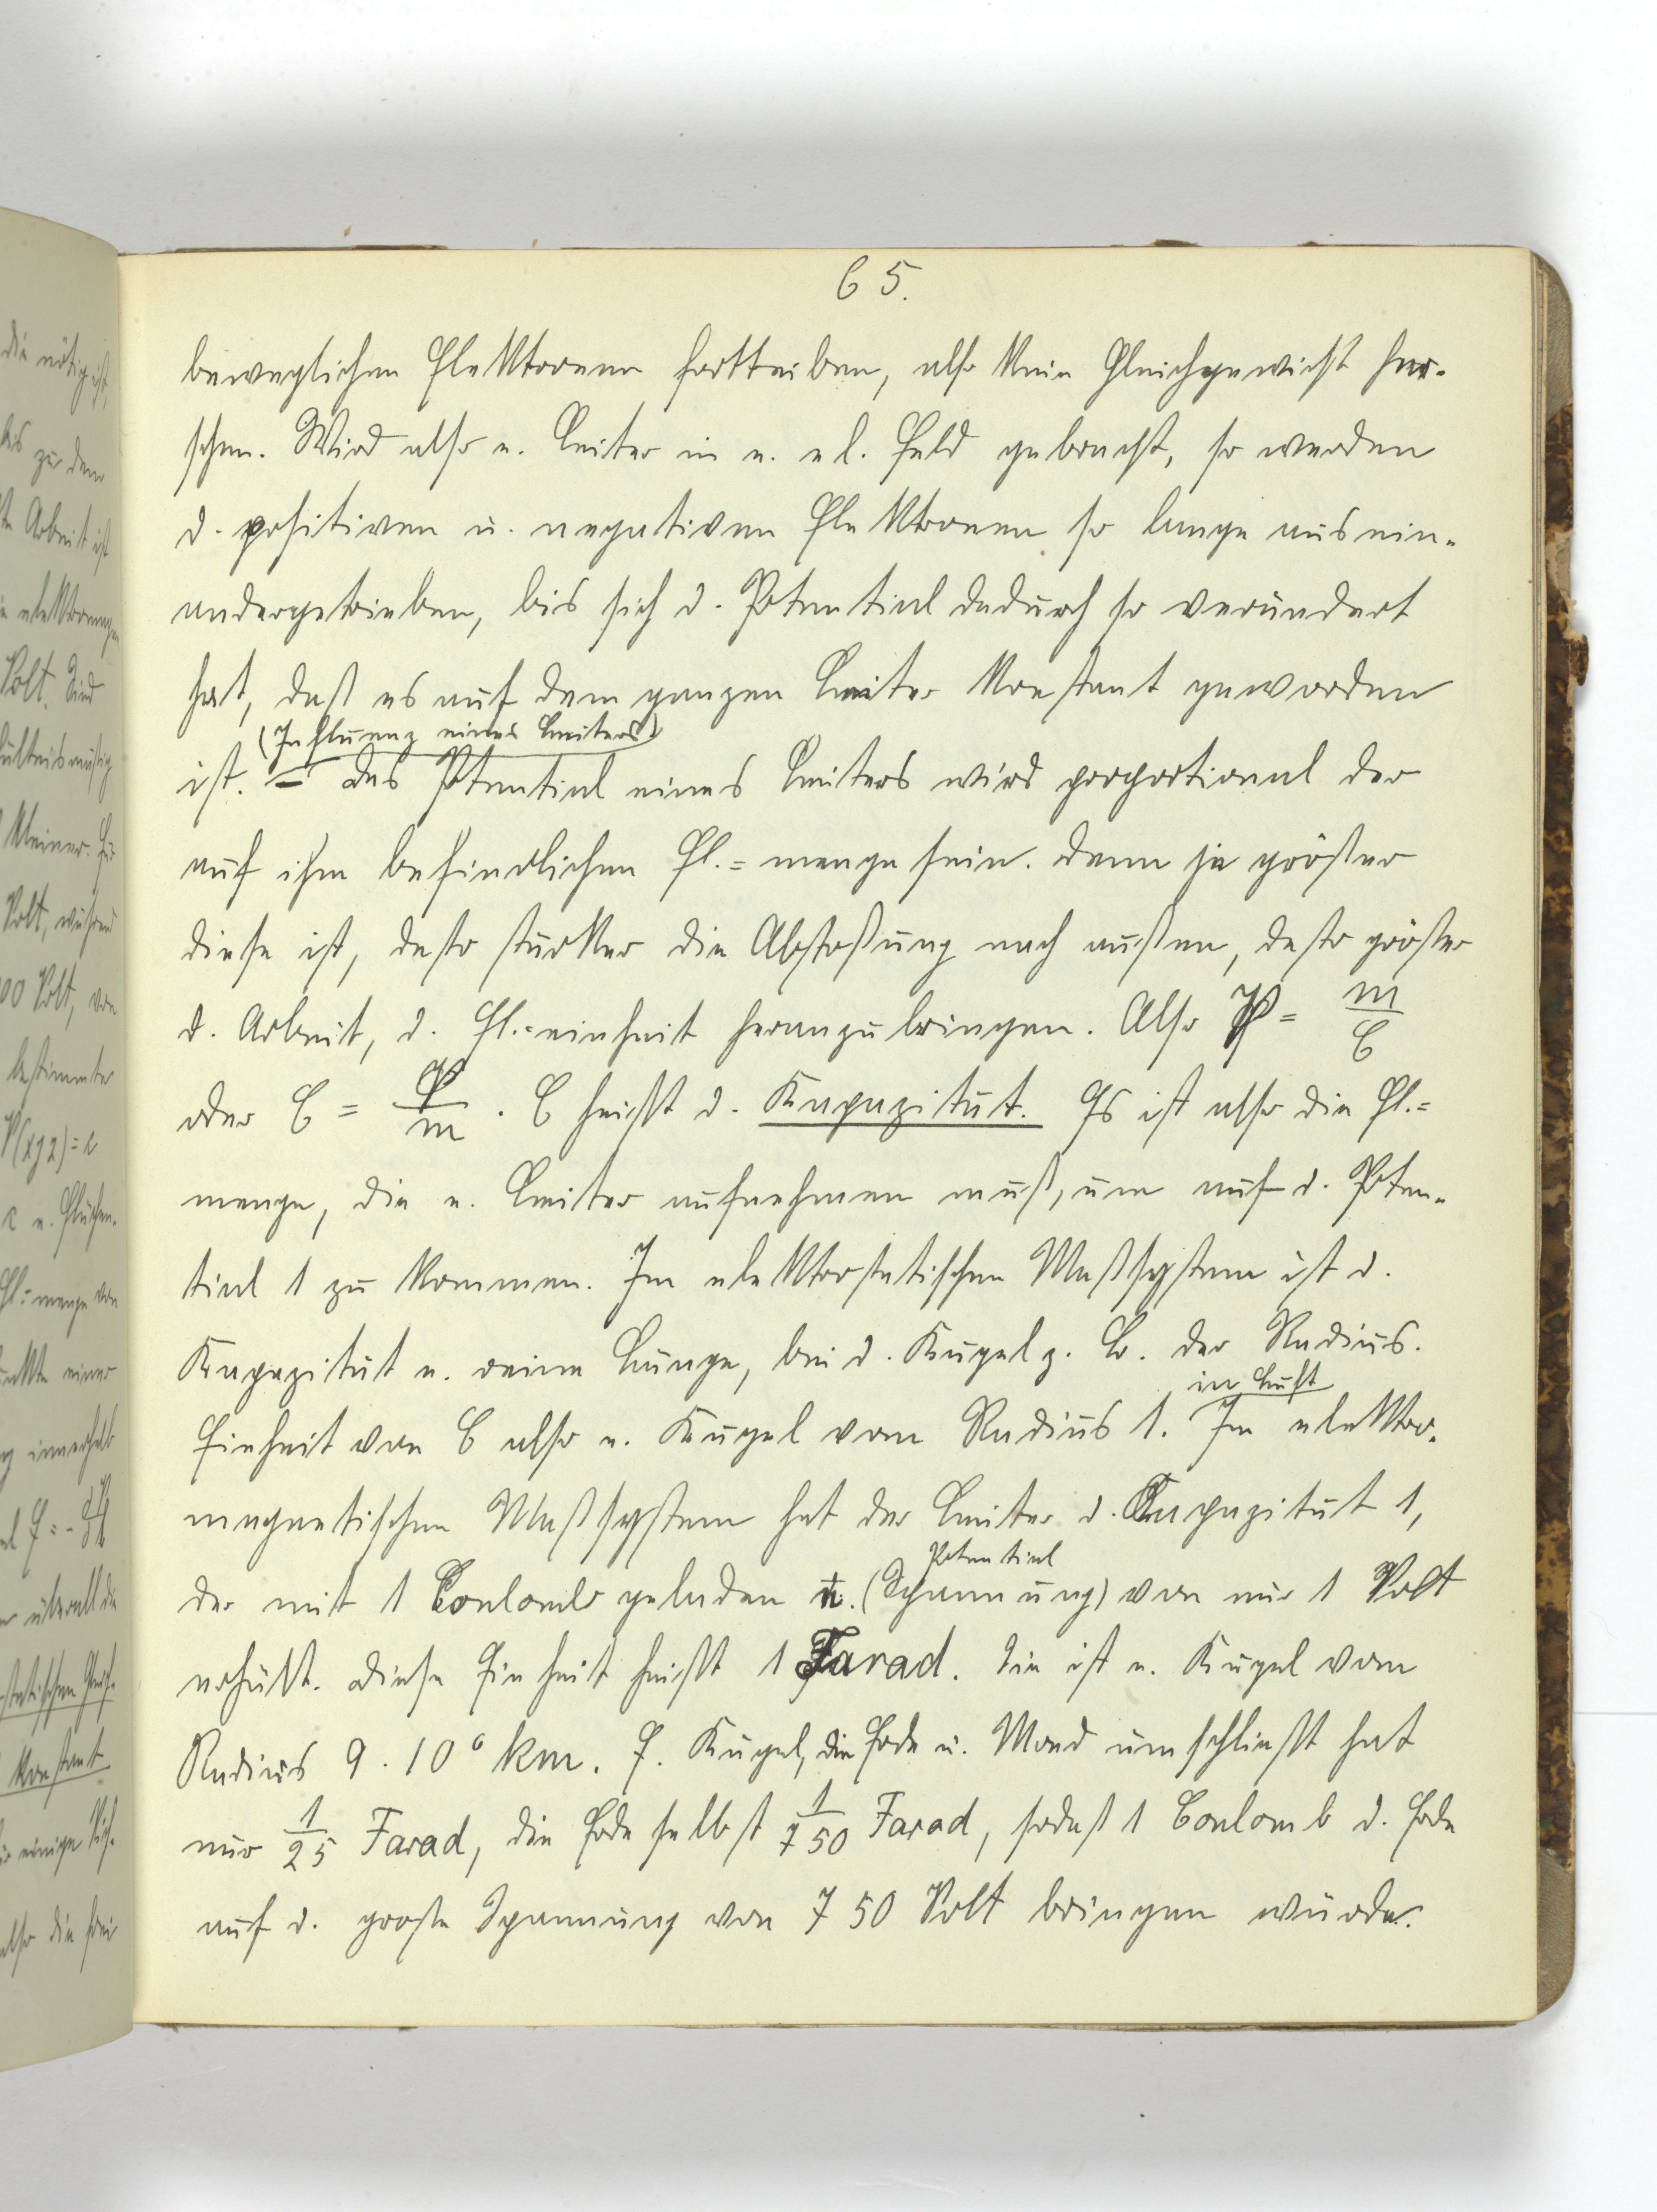 65.
beweglichen Elektronen forttreiben, also kein Gleichgewicht herr-
schen. Wird also e. Leiter in e. el. Feld gebracht, so werden
d. positiven u. negativen Elektronen so lange ausein-
andergetrieben, bis sich d. Potential dadurch so verändert
hat, daß es auf dem ganzen Leiter konstant geworden
(Influenz eines Leiters)
ist. – Das Potential eines Leiters wird proportional der
auf ihm befindlichen El.=menge sein. Denn je größer
diese ist, desto stärker die Abstoßung nach außen, desto größer
d. Arbeit, d. El.=einheit heranzubringen. Also P = m/C
oder C = P/m . C heißt d. Kapazität. Es ist also die El.=
menge, die e. Leiter aufnehmen muß, um auf d. Poten-
tial 1 zu kommen. Im elektrostatischen Maßsystem ist d.
Kapazität e. reine Länge, bei d. Kugel z. B. der Radius.
in Luft
Einheit von C also e. Kugel vom Radius 1. Im elektro-
magnetischen Maßsystem hat der Leiter d. Kapazität 1,
Potential
der mit 1 Coulomb geladen e. (Spannung) von nur 1 Volt
erhält. Diese Einheit heißt 1 Farad. Sie ist e. Kugel vom
Radius 9 . 10⁶ km. E. Kugel, die Erde u. Mond umschließt hat
nur 1/25 Farad, die Erde selbst 1/750 Farad, sodaß 1 Coulomb d. Erde
auf d. große Spannung von 750 Volt bringen würde.
die nötig ist,
bis zu dem
Arbeit ist
Volt. Sind
kleiner. Für
Volt, während
00 Volt, von
bestimmter
P(xyz) = c
El.=menge von
einer
innerhalb
überall die
konstant
einige
also die